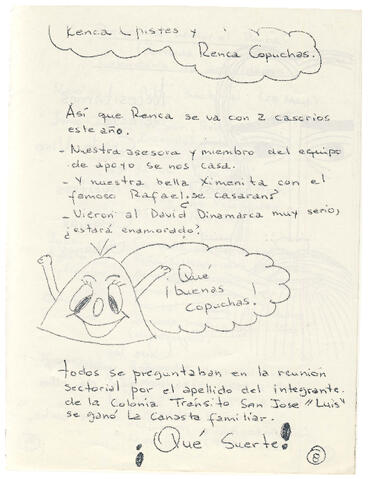 Renca Chistes y
Renca Copuchas.
Así que Renca se va con 2 casorios
este año.
- Nuestra asesora y miembro del equipo
de apoyo se nos casa.
- Y nuestra bella Ximenita con el
famoso Rafael, se casarán?
- Vieron al David Dinamarca muy serio,
¿estará enamorado?
¡Qué
buenas !
copuchas.
todos se preguntaban en la reunión
sectorial por el apellido del integrante
de la Colonia Tránsito San Jose "Luis"
se ganó La Canasta familiar.
¡Qué Suerte!
8